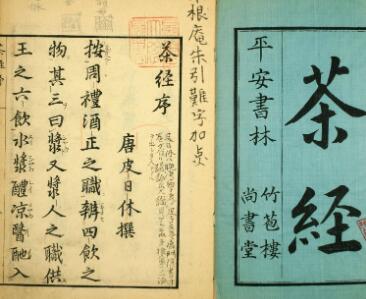 茶經
平安書林
竹苞樓
尚書堂
根庵朱引難字加点
茶経序
唐皮日休撰
按周禮酒正之職辨四飲之
物其三曰漿又漿人之職供
王之六飲水漿醴涼醫酏入